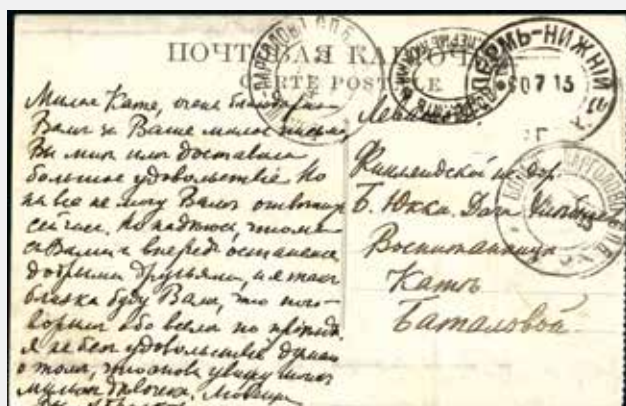 ПОЧТОВАЯ КАРТОЧКА
CARTE POSTALE
ПАРГОЛОВО С.П.Б.
ПЕРМЬ-НИЖНІЙ
30 7 13
Милая Катя, очень благодарю
Васъ за Ваше милое письмо,
Вы мнѣ имъ доставили
большое удовольствіе. Но
на все не могу Вамъ отвѣтить
сейчасъ. Но надѣюсь, что мы
съ Вами и впередъ останемся
добрыми друзьями, и я такъ
близка буду Вамъ, что
обо всемъ по правдѣ.
Я не безъ удовольствія думаю
о томъ, что снова увижу мою
милую дѣвочку.
Финляндской ж. дор.
Б. Юкки. Дача
Воспитанницѣ
Катѣ
Баталовой.